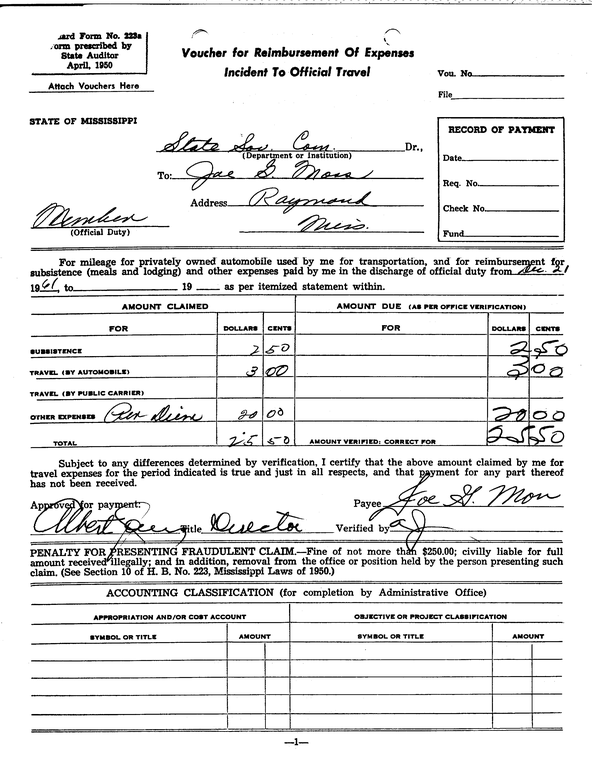 ard Form No. 223a
orm prescribed by
State Auditor
April, 1950
Attach Vouchers Here
Voucher for Reimbursement Of Expenses
Incident To Official Travel
Vou. No.
File
STATE OF MISSISSIPPI
State Sov. Com. Dr.,
(Department or Institution)
To: Joe G. Moss
Address Raymond
Miss.
Member
(Official Duty)
RECORD OF PAYMENT
Date
Req. No.
Check No.
Fund
For mileage for privately owned automobile used by me for transportation, and for reimbursement for
subsistence (meals and lodging) and other expenses paid by me in the discharge of official duty from Dec. 21
1961, to 19 as per itemized statement within.
AMOUNT CLAIMED AMOUNT DUE (AS PER OFFICE VERIFICATION)
FOR DOLLARS CENTS FOR DOLLARS CENTS
SUBSISTENCE 2 50 2 50
TRAVEL (BY AUTOMOBILE) 3 00 3 00
TRAVEL (BY PUBLIC CARRIER)
OTHER EXPENSES Per Diem 20 00 20 00
TOTAL 25 50 AMOUNT VERIFIED: CORRECT FOR 25 50
Subject to any differences determined by verification, I certify that the above amount claimed by me for
travel expenses for the period indicated is true and just in all respects, and that payment for any part thereof
has not been received.
Approved for payment: Payee Joe G. Moss
Albert Title Director Verified by
PENALTY FOR PRESENTING FRAUDULENT CLAIM.—Fine of not more than $250.00; civilly liable for full
amount received illegally; and in addition, removal from the office or position held by the person presenting such
claim. (See Section 10 of H. B. No. 223, Mississippi Laws of 1950.)
ACCOUNTING CLASSIFICATION (for completion by Administrative Office)
APPROPRIATION AND/OR COST ACCOUNT OBJECTIVE OR PROJECT CLASSIFICATION
SYMBOL OR TITLE AMOUNT SYMBOL OR TITLE AMOUNT
—1—